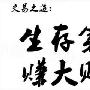 交易之道：
生存第
赚大财